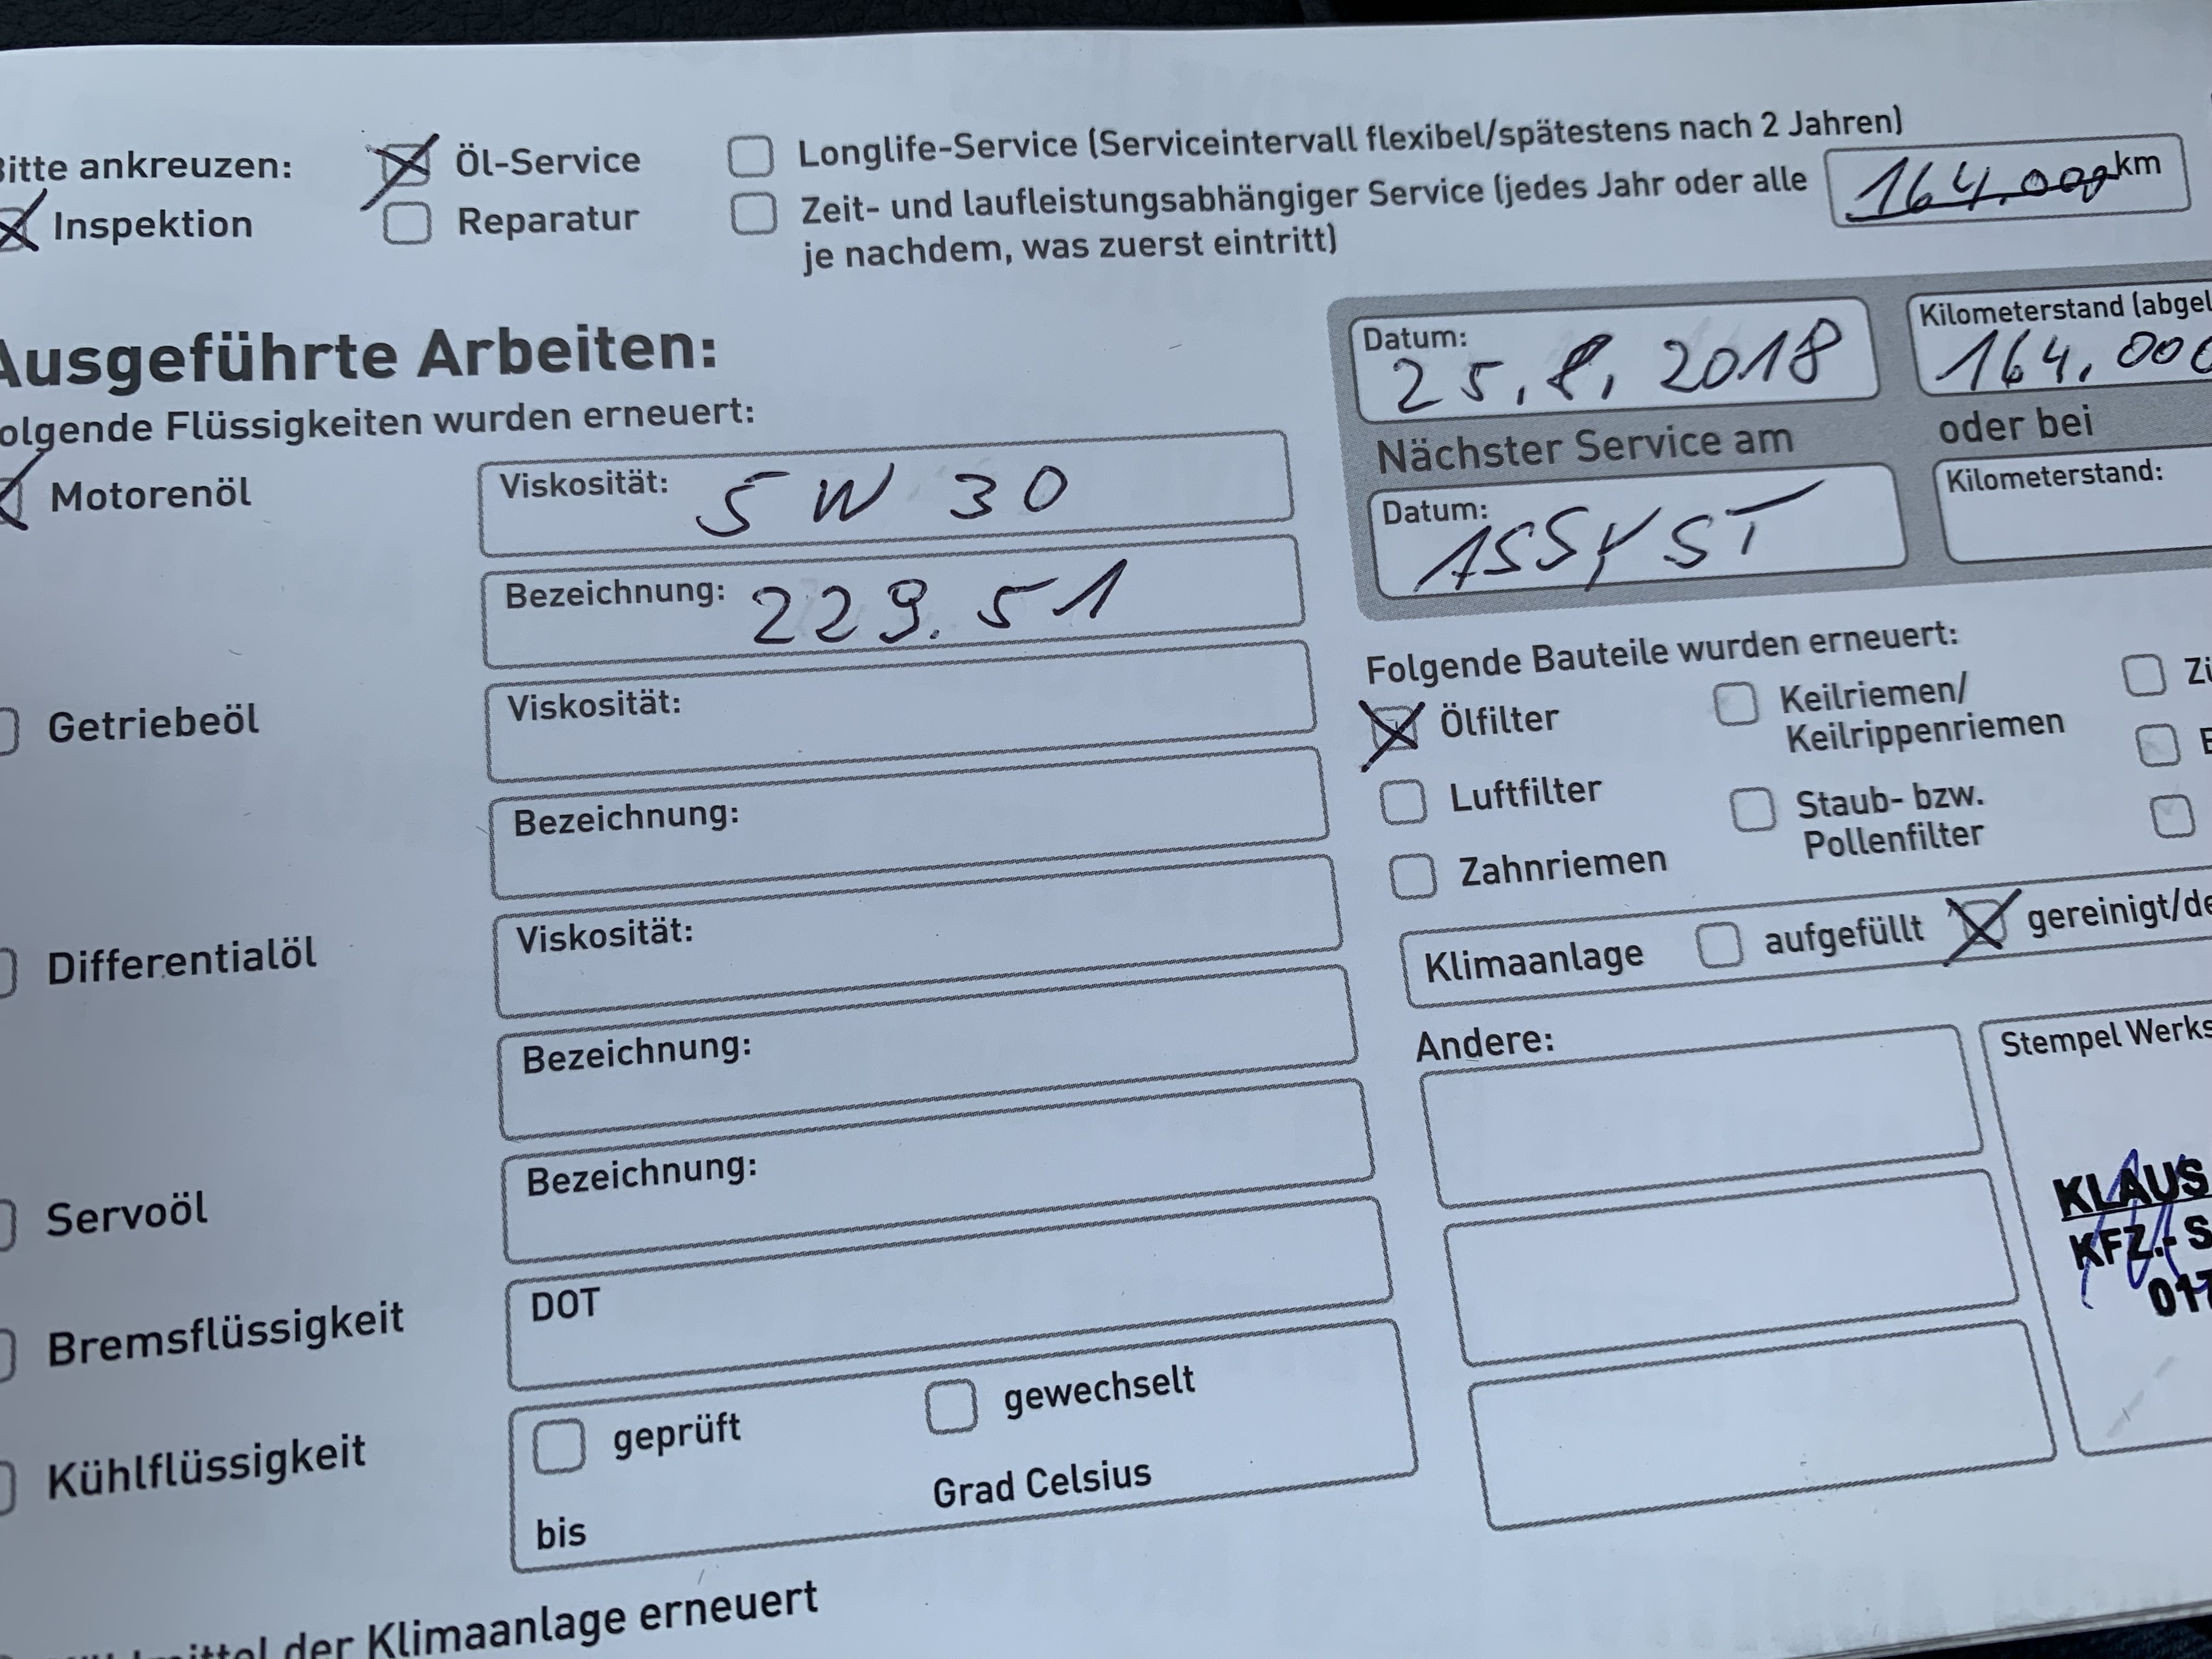 itte ankreuzen:
Öl-Service
Longlife-Service (Serviceintervall flexibel/spätestens nach 2 Jahren)
Inspektion
Reparatur
Zeit- und laufleistungsabhängiger Service (jedes Jahr oder alle 164.000 km
je nachdem, was zuerst eintritt)
Ausgeführte Arbeiten:
olgende Flüssigkeiten wurden erneuert:
Motorenöl
Viskosität: 5 W 30
Bezeichnung: 229.51
Getriebeöl
Viskosität:
Bezeichnung:
Differentialöl
Viskosität:
Bezeichnung:
Servoöl
Bezeichnung:
Bremsflüssigkeit
DOT
Kühlflüssigkeit
geprüft
gewechselt
bis
Grad Celsius
der Klimaanlage erneuert
Datum:
25.8.2018
Kilometerstand (abgel
164.000
Nächster Service am
oder bei
Datum:
ASSYST
Kilometerstand:
Folgende Bauteile wurden erneuert:
Ölfilter
Keilriemen/
Keilrippenriemen
Luftfilter
Staub- bzw.
Pollenfilter
Zahnriemen
Klimaanlage
aufgefüllt
gereinigt/de
Andere:
Stempel Werks
KLAUS
KFZ.- S
017